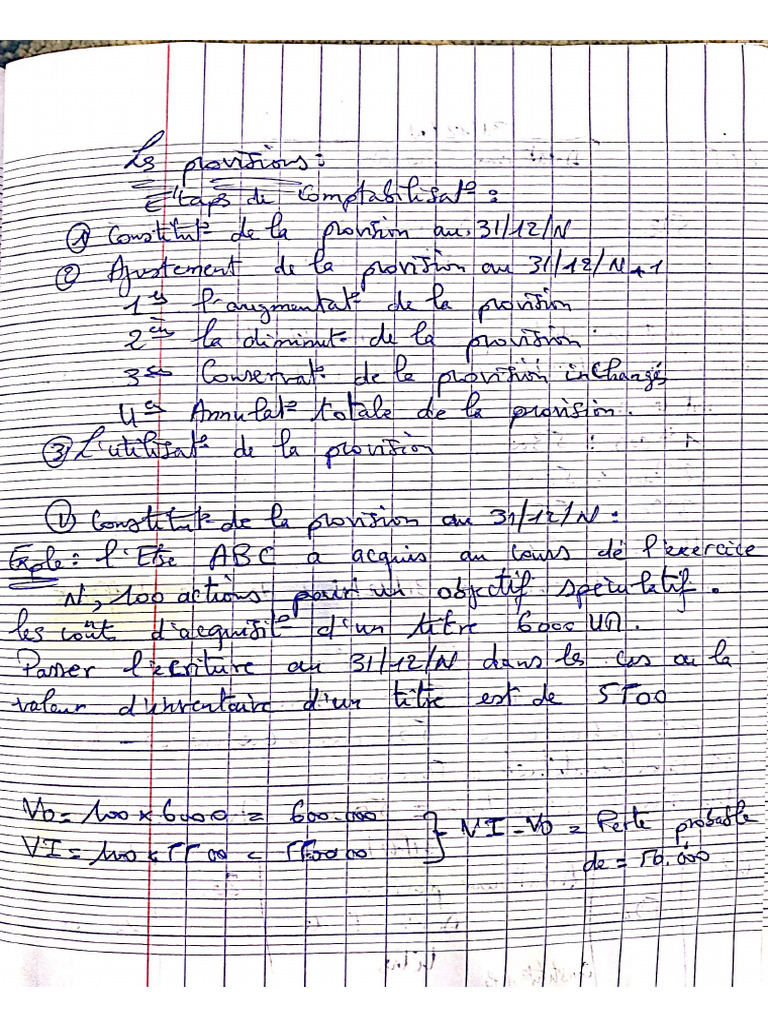 Les provisions :
Etaps de comptabilisat° :
① Constitut° de la provision au 31/12/N
② Ajustement de la provision au 31/12/N+1
1 l'augmentat° de la provision
2 la diminut° de la provision
3 Conservat° de la provision inchangés
4 Annulat° totale de la provision.
③ L'utilisat° de la provision
① Constitut° de la provision au 31/12/N :
Exple : l'Etse ABC a acquis au cours de l'exercice
N, 100 actions pour un objectif spéculatif.
les coût d'acquisit° d'un titre 6000 UM.
Passer l'écriture au 31/12/N dans le cas ou la
valeur d'inventaire d'un titre est de 5500
V0 = 100 x 6000 = 600.000 } VI - V0 = Perte probable
VI = 100 x 5500 = 550000 de = 50.000